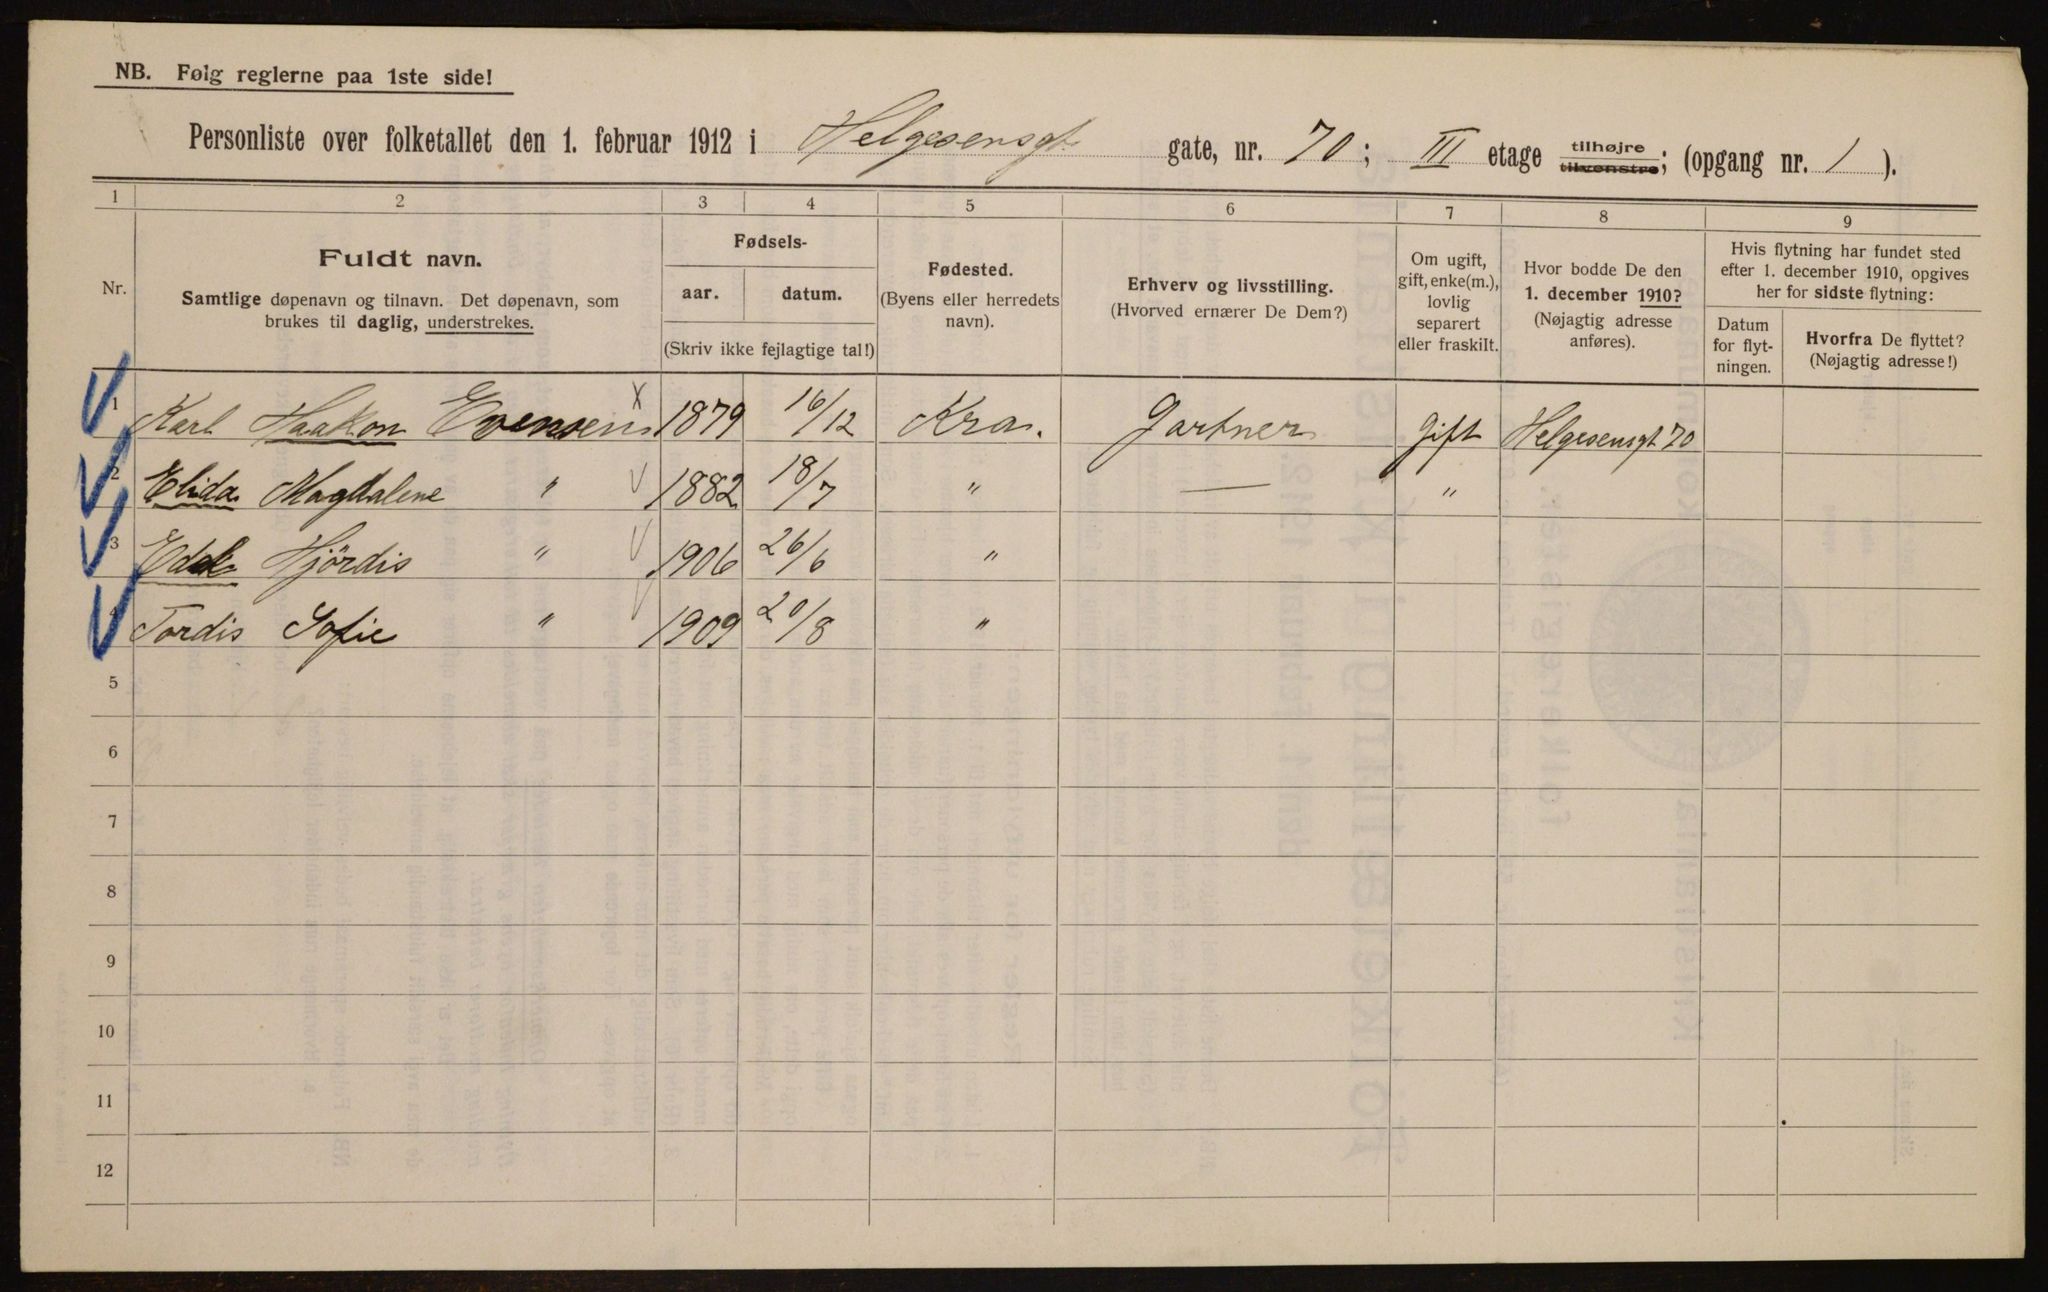 NB. Følg reglerne paa 1ste side!
Personliste over folketallet den 1. februar 1912 i Helgesensgt. gate, nr. 70; III etage tilhøjre tilvenstre; (opgang nr. 1).
1 2 3 4 5 6 7 8 9
Nr.
Fuldt navn.
Samtlige døpenavn og tilnavn. Det døpenavn, som
brukes til daglig, understrekes.
Fødsels-
aar. datum.
(Skriv ikke fejlagtige tal!)
Fødested.
(Byens eller herredets
navn).
Erhverv og livsstilling.
(Hvorved ernærer De Dem?)
Om ugift,
gift, enke(m.),
lovlig
separert
eller fraskilt.
Hvor bodde De den
1. december 1910?
(Nøjagtig adresse
anføres).
Hvis flytning har fundet sted
efter 1. december 1910, opgives
her for sidste flytning:
Datum
for flyt-
ningen.
Hvorfra De flyttet?
(Nøjagtig adresse!)
1 Karl Haakon Evensen x 1879 16/12 Kra. Gartner Gift Helgesensgt 70
2 Elida Magdalene " 1882 18/7 " — "
3 Hjördis " 1906 26/6 "
4 Tordis Sofie " 1909 20/8 "
5
6
7
8
9
10
11
12